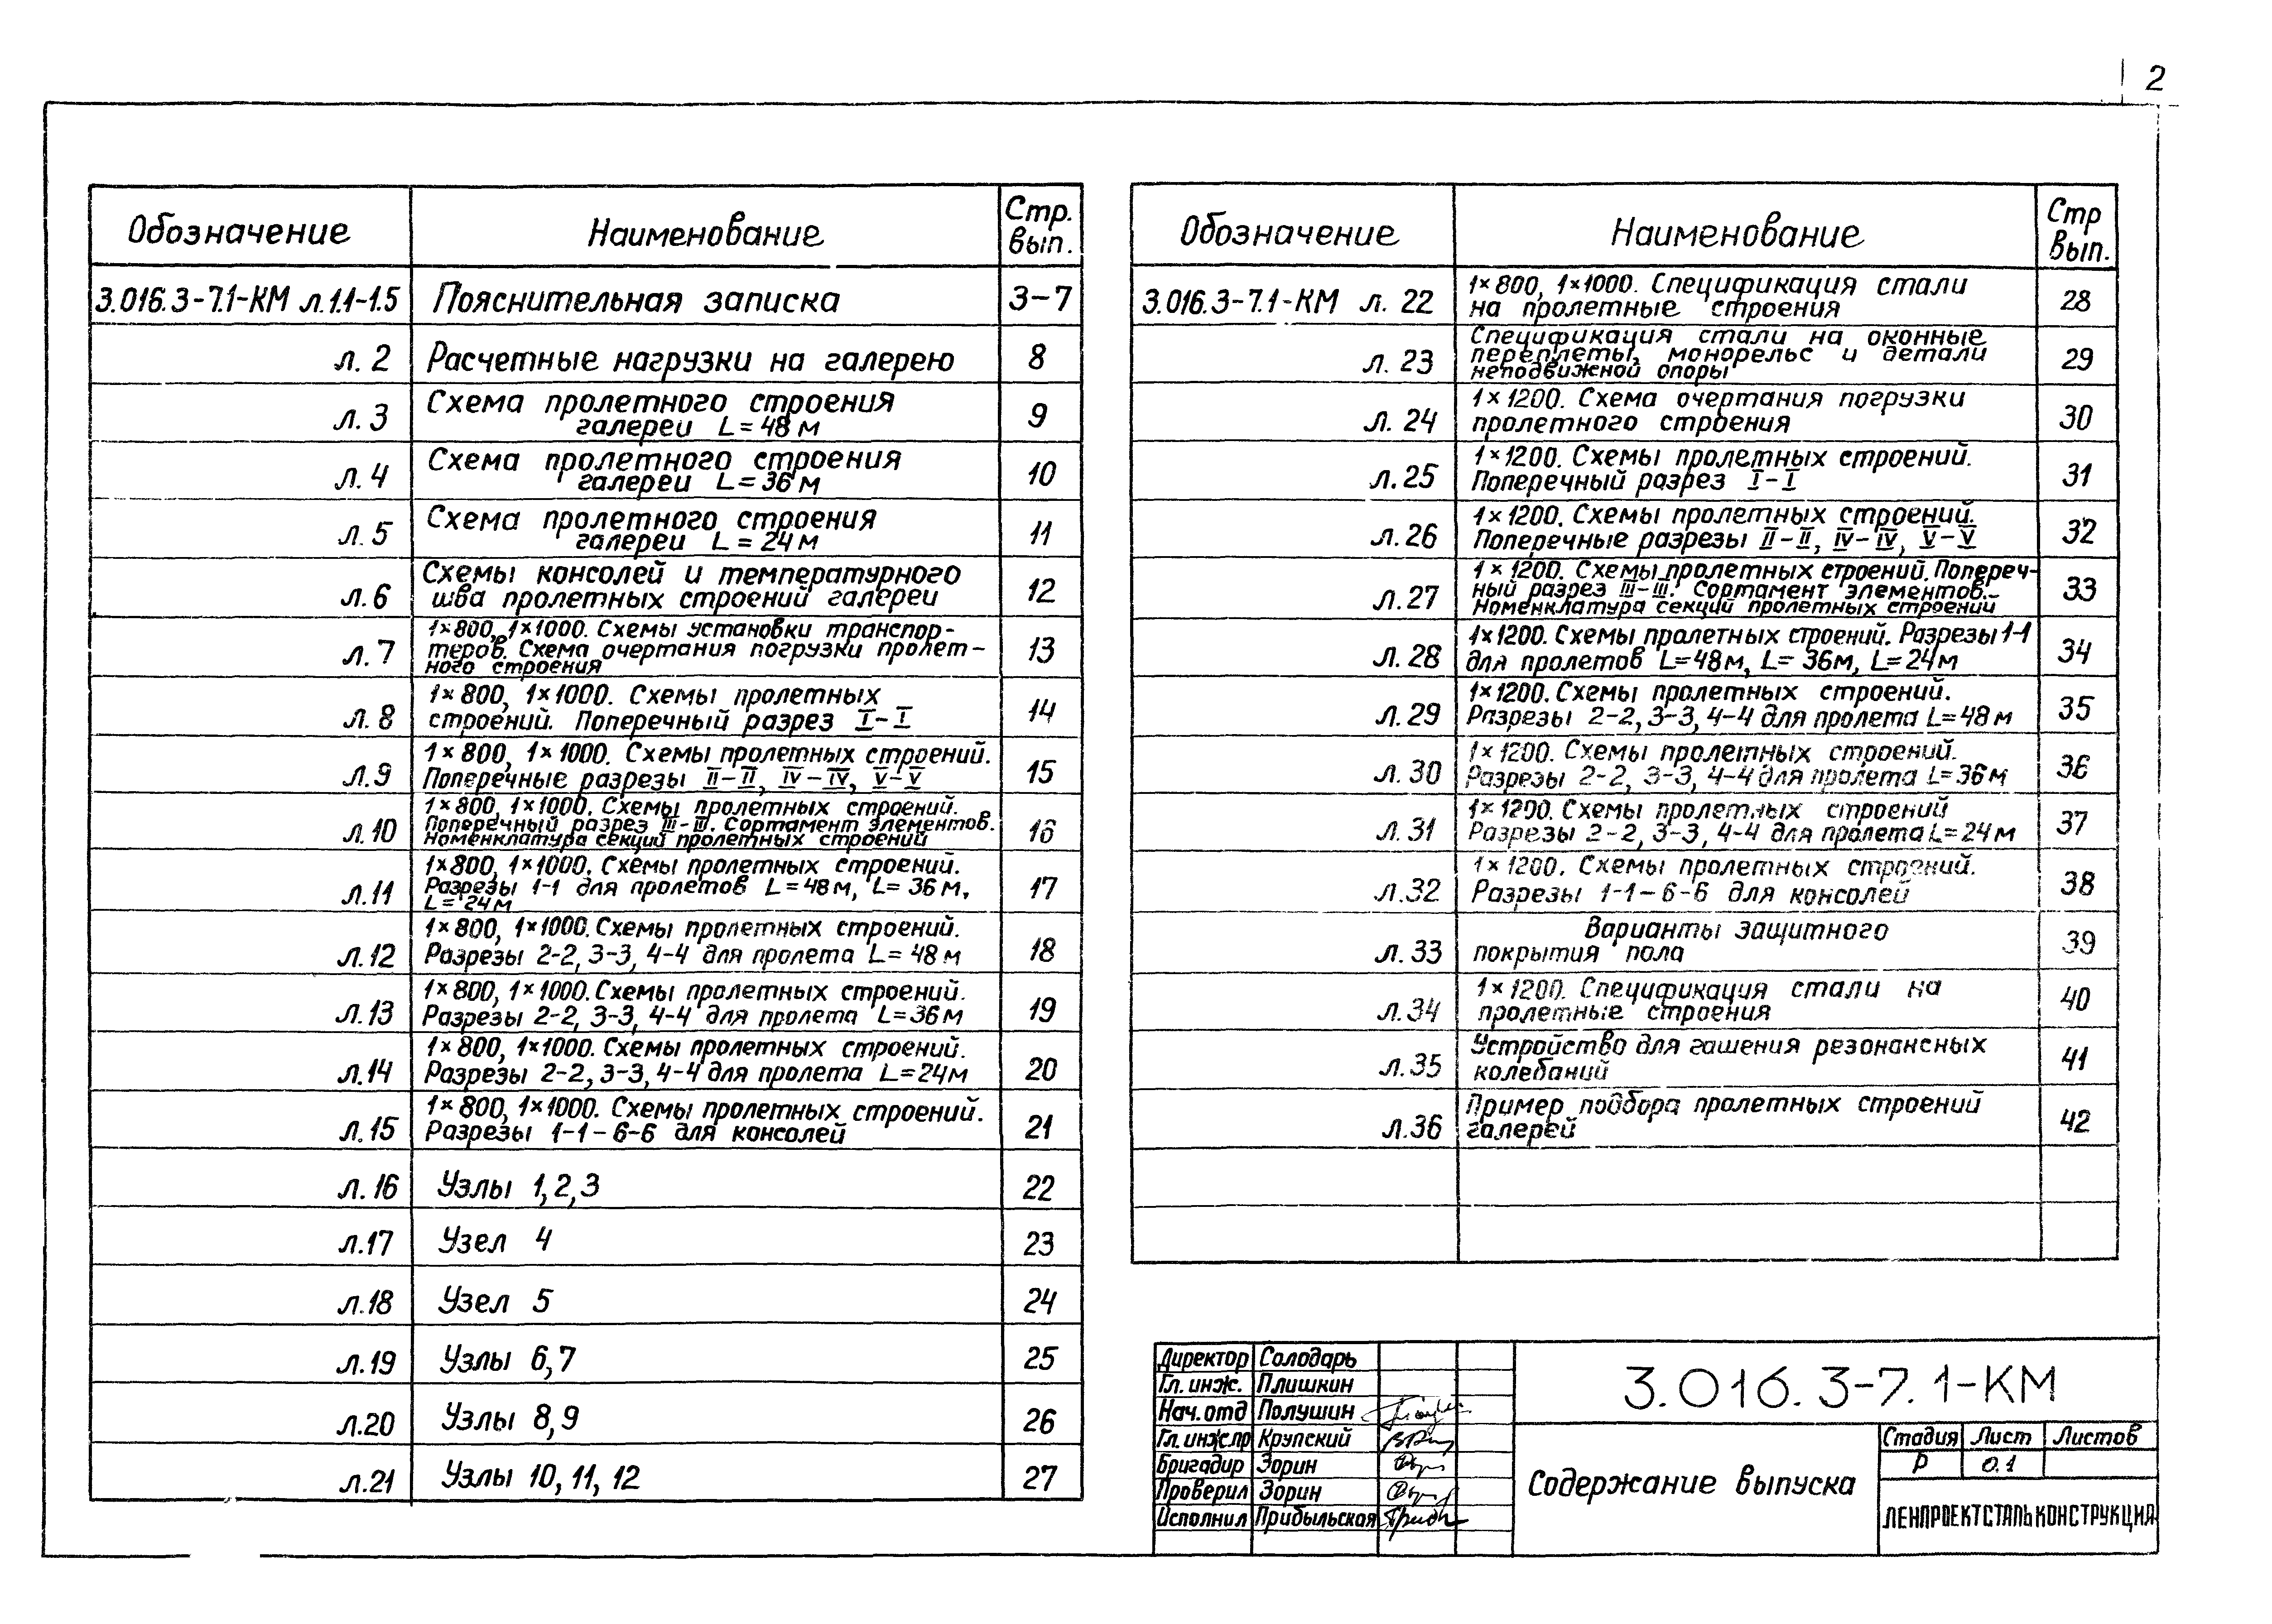 2
Обозначение
Наименование
Стр.
вып.
3.016.3-7.1-КМ л.1.1-1.5
Пояснительная записка
3-7
л. 2
Расчетные нагрузки на галерею
8
л. 3
Схема пролетного строения
галереи L=48м
9
л. 4
Схема пролетного строения
галереи L=36м
10
л. 5
Схема пролетного строения
галереи L=24м
11
л. 6
Схемы консолей и температурного
шва пролетных строений галереи
12
л. 7
1×800, 1×1000. Схемы установки транспор-
теров. Схема очертания погрузки пролет-
ного строения
13
л. 8
1×800, 1×1000. Схемы пролетных
строений. Поперечный разрез I-I
14
л. 9
1×800, 1×1000. Схемы пролетных строений.
Поперечные разрезы II-II, IV-IV, V-V
15
л. 10
1×800, 1×1000. Схемы пролетных строений.
Поперечный разрез III-III. Сортамент элементов.
Номенклатура секций пролетных строений
16
л. 11
1×800, 1×1000. Схемы пролетных строений.
Разрезы 1-1 для пролетов L=48м, L=36м,
L=24м
17
л. 12
1×800, 1×1000. Схемы пролетных строений.
Разрезы 2-2, 3-3, 4-4 для пролета L=48м
18
л. 13
1×800, 1×1000. Схемы пролетных строений.
Разрезы 2-2, 3-3, 4-4 для пролета L=36м
19
л. 14
1×800, 1×1000. Схемы пролетных строений.
Разрезы 2-2, 3-3, 4-4 для пролета L=24м
20
л. 15
1×800, 1×1000. Схемы пролетных строений.
Разрезы 1-1-6-6 для консолей
21
л. 16
Узлы 1, 2, 3
22
л. 17
Узел 4
23
л. 18
Узел 5
24
л. 19
Узлы 6, 7
25
л. 20
Узлы 8, 9
26
л. 21
Узлы 10, 11, 12
27
Обозначение
Наименование
Стр
вып.
3.016.3-7.1-КМ л. 22
1×800, 1×1000. Спецификация стали
на пролетные строения
28
л. 23
Спецификация стали на оконные
переплеты, монорельс и детали
неподвижной опоры
29
л. 24
1×1200. Схема очертания погрузки
пролетного строения
30
л. 25
1×1200. Схемы пролетных строений.
Поперечный разрез I-I
31
л. 26
1×1200. Схемы пролетных строений.
Поперечные разрезы II-II, IV-IV, V-V
32
л. 27
1×1200. Схемы пролетных строений. Попереч-
ный разрез III-III. Сортамент элементов.
Номенклатура секций пролетных строений
33
л. 28
1×1200. Схемы пролетных строений. Разрезы 1-1
для пролетов L=48м, L=36м, L=24м
34
л. 29
1×1200. Схемы пролетных строений.
Разрезы 2-2, 3-3, 4-4 для пролета L=48м
35
л. 30
1×1200. Схемы пролетных строений.
Разрезы 2-2, 3-3, 4-4 для пролета L=36м
36
л. 31
1×1200. Схемы пролетных строений
Разрезы 2-2, 3-3, 4-4 для пролета L=24м
37
л. 32
1×1200. Схемы пролетных строений.
Разрезы 1-1-6-6 для консолей
38
л. 33
Варианты защитного
покрытия пола
39
л. 34
1×1200. Спецификация стали на
пролетные строения
40
л. 35
Устройство для гашения резонансных
колебаний
41
л. 36
Пример подбора пролетных строений
галерей
42
Директор Солодарь
Гл. инж. Плишкин
Нач. отд Полушин
Гл. инж.пр Крупский
Бригадир Зорин
Проверил Зорин
Исполнил Прибыльская
3.016.3-7.1-КМ
Содержание выпуска
Стадия Лист Листов
Р 0.1
ЛЕНПРОЕКТСТАЛЬКОНСТРУКЦИЯ